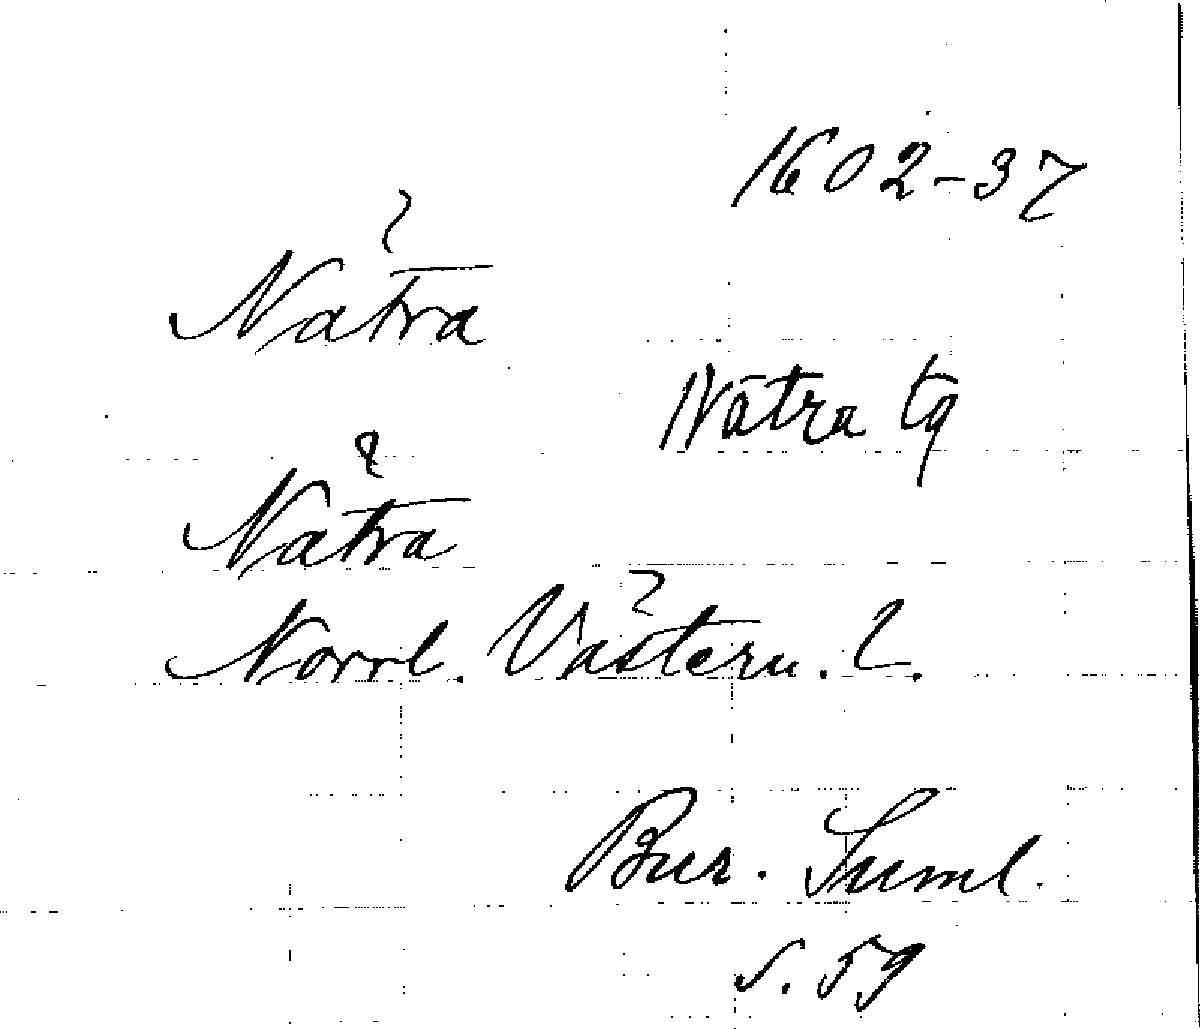 1602-37
Nätra
Nätra tg
Nätra
Norrl. Västern. L.
Bur. Suml.
s. 59